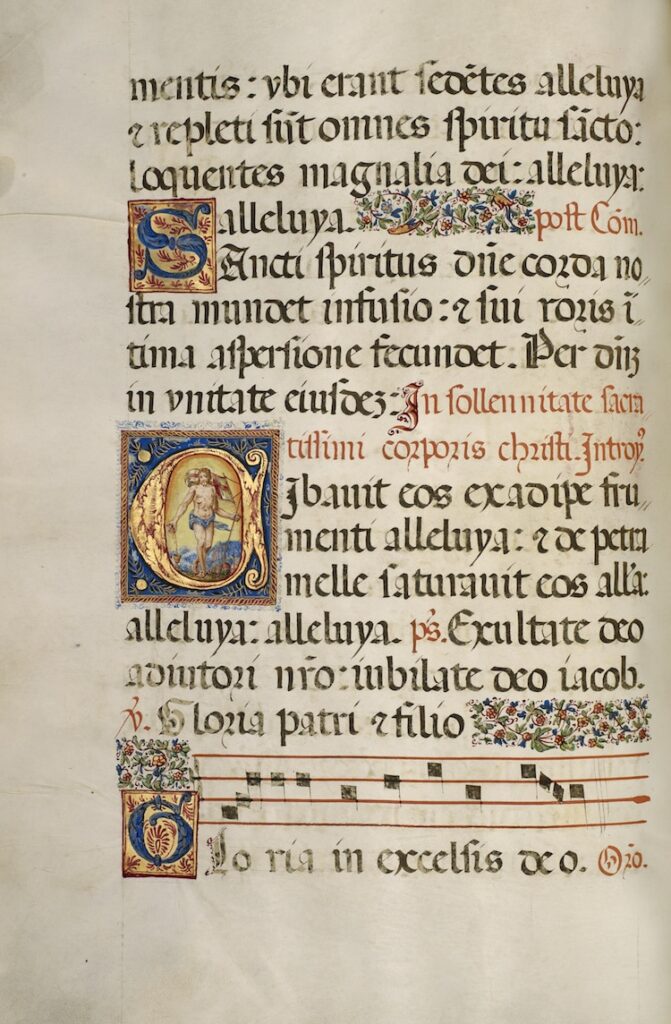 mentis : vbi erant sedẽtes alleluya
⁊ repleti sũt omnes spiritu sãcto :
loquentes magnalia dei : alleluya :
alleluya. post Cõm.
SAncti spiritus dñe corda no„
stra mundet infusio : ⁊ sui roris ĩ„
tima aspersione fecundet. Per dñȝ
in vnitate eiusdeȝ : In sollennitate sacra
tissimi corporis christi. Introy.
CIbauit eos ex adipe fru„
menti alleluya : ⁊ de petra
melle saturauit eos all'a :
alleluya : alleluya. ps. Exultate deo
adiutori nr̃o : iubilate deo iacob.
v. Gloria patri ⁊ filio
GLo ria in excelsis de o. Orõ.